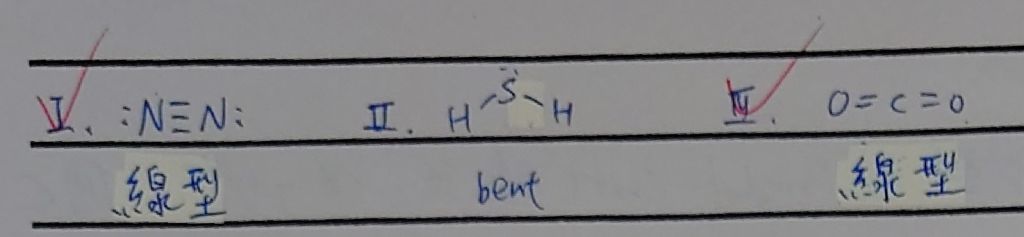 I. :N≡N: II. H-S̈-H III. O=C=O
線型 bent 線型